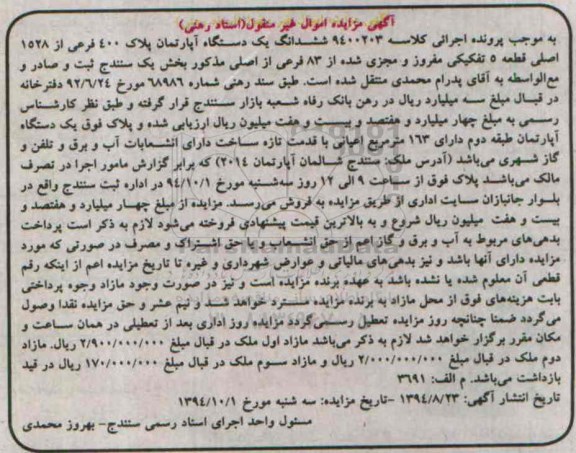 آگهی مزایده اموال غیر منقول(اسناد رهنی)
به موجب پرونده اجرائی کلاسه ۹۴۰۰۲۰۳ ششدانگ یک دستگاه آپارتمان پلاک ۴۰۰ فرعی از ۱۵۲۸
اصلی قطعه ۵ تفکیکی مفروز و مجزی شده از ۸۳ فرعی از اصلی مذکور بخش یک سنندج ثبت و صادر و
مع‌الواسطه به آقای پدرام محمدی منتقل شده است. طبق سند رهنی شماره ۶۸۹۸۶ مورخ ۹۲/۶/۲۴ دفترخانه
در قبال مبلغ سه میلیارد ریال در رهن بانک رفاه شعبه بازار سنندج قرار گرفته و طبق نظر کارشناس
رسمی به مبلغ چهار میلیارد و هفتصد و بیست و هفت میلیون ریال ارزیابی شده و پلاک فوق یک دستگاه
آپارتمان طبقه دوم دارای ۱۶۳ مترمربع اعیانی با قدمت تازه ساخت دارای انشعابات آب و برق و تلفن و
گاز شهری می‌باشد (آدرس ملک: سنندج شالمان آپارتمان ۲۰۱۴) که برابر گزارش مامور اجرا در تصرف
مالک می‌باشد پلاک فوق از ساعت ۹ الی ۱۲ روز سه‌شنبه مورخ ۹۴/۱۰/۱ در اداره ثبت سنندج واقع در
بلوار جانبازان سایت اداری از طریق مزایده به فروش می‌رسد. مزایده از مبلغ چهار میلیارد و هفتصد و
بیست و هفت میلیون ریال شروع و به بالاترین قیمت پیشنهادی فروخته می‌شود لازم به ذکر است پرداخت
بدهی‌های مربوط به آب و برق و گاز اعم از حق انشعاب و یا حق اشتراک و مصرف در صورتی که مورد
مزایده دارای آنها باشد و نیز بدهی‌های مالیاتی و عوارض شهرداری و غیره تا تاریخ مزایده اعم از اینکه رقم
قطعی آن معلوم شده یا نشده باشد به عهده برنده مزایده است و نیز در صورت وجود مازاد وجوه پرداختی
بابت هزینه‌های فوق از محل مازاد به برنده مزایده مسترد خواهد شد و نیم عشر و حق مزایده نقدا وصول
می‌گردد ضمنا چنانچه روز مزایده تعطیل رسمی‌گردد مزایده روز اداری بعد از تعطیلی در همان ساعت و
مکان مقرر برگزار خواهد شد لازم به ذکر می‌باشد مازاد اول ملک در قبال مبلغ ۲/۹۰۰/۰۰۰/۰۰۰ ریال. مازاد
دوم ملک در قبال مبلغ ۲/۰۰۰/۰۰۰/۰۰۰ ریال و مازاد سوم ملک در قبال مبلغ ۱۷۰/۰۰۰/۰۰۰ ریال در قید
بازداشت می‌باشد. م الف: ۳۶۹۱
تاریخ انتشار آگهی: ۱۳۹۴/۸/۲۳ -تاریخ مزایده: سه شنبه مورخ ۱۳۹۴/۱۰/۱
مسئول واحد اجرای اسناد رسمی سنندج- بهروز محمدی